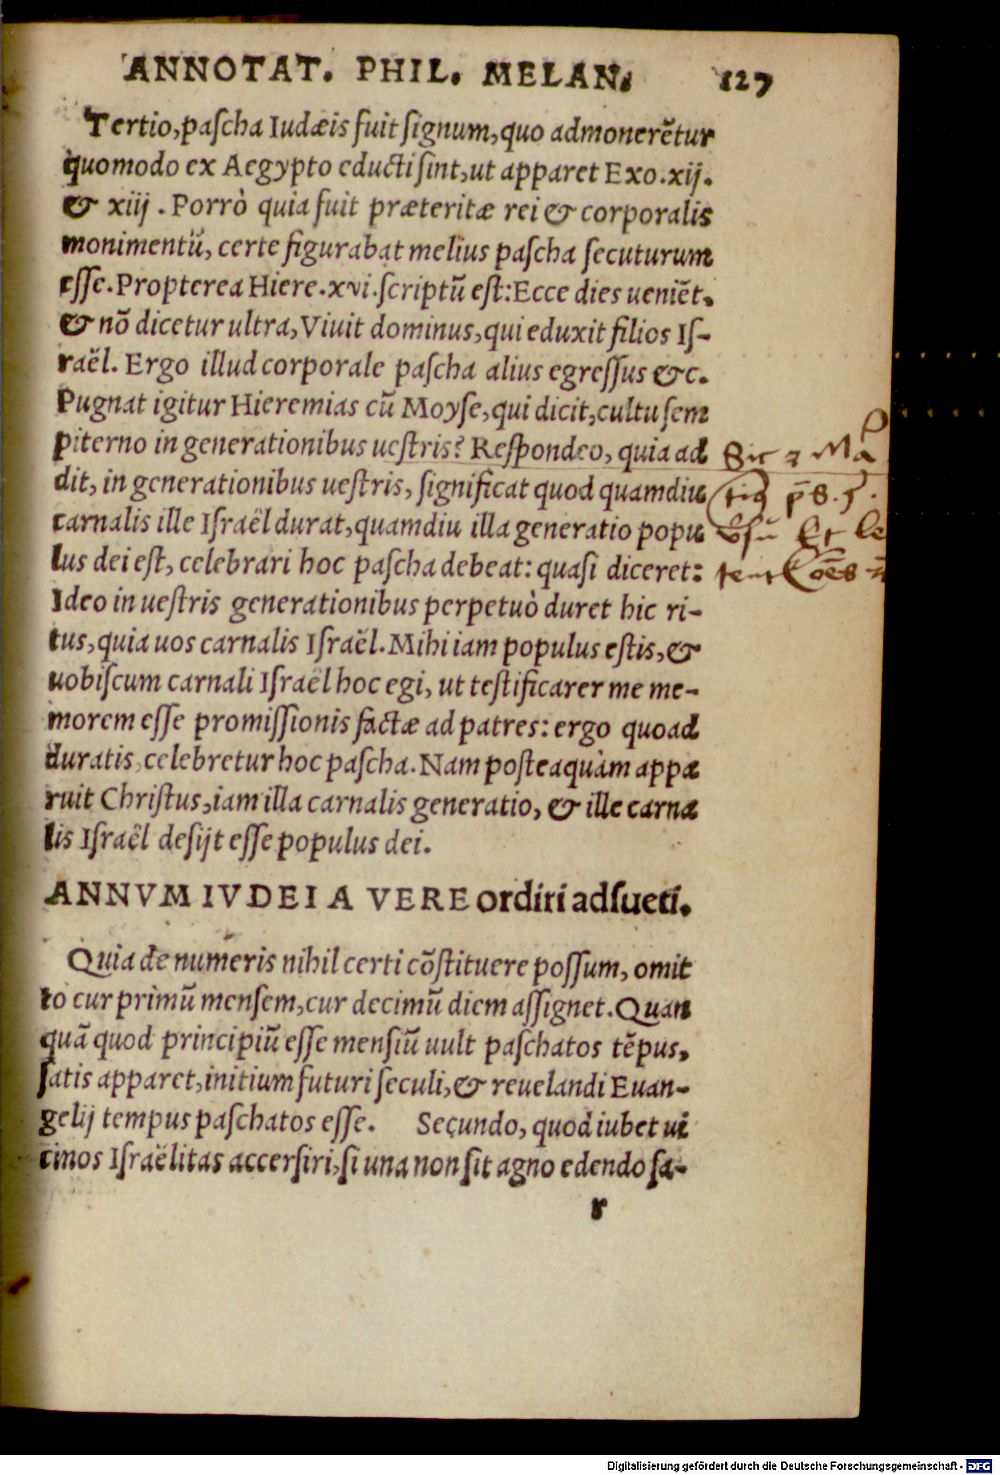 ANNOTAT. PHIL. MELAN. 127
Tertio, paſcha Iudæis fuit ſignum, quo admonerẽtur
quomodo ex Aegypto educti ſint, ut apparet Exo. xij.
& xiij. Porrò quia fuit præteritæ rei & corporalis
monimentũ, certe figurabat melius paſcha ſecuturum
eſſe. Propterea Hiere. xvi. ſcriptũ eſt: Ecce dies ueniẽt,
& nõ dicetur ultra, Viuit dominus, qui eduxit filios Iſ-
raël. Ergo illud corporale paſcha alius egreſſus &c.
Pugnat igitur Hieremias cũ Moyſe, qui dicit, cultu ſem
piterno in generationibus ueſtris? Reſpondeo, quia ad
dit, in generationibus ueſtris, ſignificat quod quamdiu
carnalis ille Iſraël durat, quamdiu illa generatio popu
lus dei eſt, celebrari hoc paſcha debeat: quaſi diceret:
Ideo in ueſtris generationibus perpetuò duret hic ri-
tus, quia uos carnalis Iſraël. Mihi iam populus eſtis, &
uobiſcum carnali Iſraël hoc egi, ut teſtificarer me me-
morem eſſe promiſſionis factæ ad patres: ergo quoad
duratis, celebretur hoc paſcha. Nam poſteaquàm appa
ruit Chriſtus, iam illa carnalis generatio, & ille carna
lis Iſraël deſijt eſſe populus dei.
ANNVM IVDEI A VERE ordiri adſueti.
Quia de numeris nihil certi cõſtituere poſſum, omit
to cur primũ menſem, cur decimũ diem aſſignet. Quan
quã quod principiũ eſſe menſiũ uult paſchatos tẽpus,
ſatis apparet, initium futuri ſeculi, & reuelandi Euan-
gelij tempus paſchatos eſſe. Secundo, quod iubet ui
cinos Iſraëlitas accerſiri, ſi una non ſit agno edendo ſa-
r
Digitalisierung gefördert durch die Deutsche Forschungsgemeinschaft - DFG